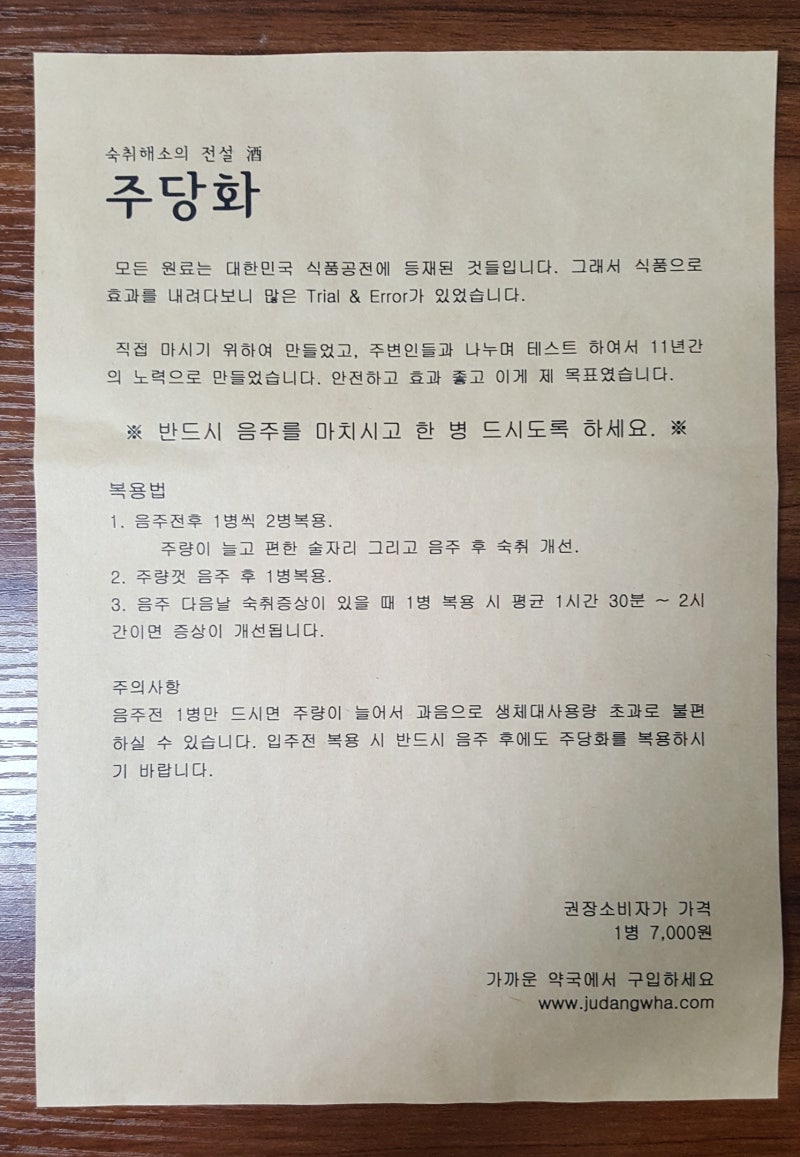 숙취해소의 전설 酒
주당화
모든 원료는 대한민국 식품공전에 등재된 것들입니다. 그래서 식품으로
효과를 내려다보니 많은 Trial & Error가 있었습니다.
직접 마시기 위하여 만들었고, 주변인들과 나누며 테스트 하여서 11년간
의 노력으로 만들었습니다. 안전하고 효과 좋고 이게 제 목표였습니다.
※ 반드시 음주를 마치시고 한 병 드시도록 하세요. ※
복용법
1. 음주전후 1병씩 2병복용.
주량이 늘고 편한 술자리 그리고 음주 후 숙취 개선.
2. 주량껏 음주 후 1병복용.
3. 음주 다음날 숙취증상이 있을 때 1병 복용 시 평균 1시간 30분 ~ 2시
간이면 증상이 개선됩니다.
주의사항
음주전 1병만 드시면 주량이 늘어서 과음으로 생체대사용량 초과로 불편
하실 수 있습니다. 입주전 복용 시 반드시 음주 후에도 주당화를 복용하시
기 바랍니다.
권장소비자가 가격
1병 7,000원
가까운 약국에서 구입하세요
www.judangwha.com